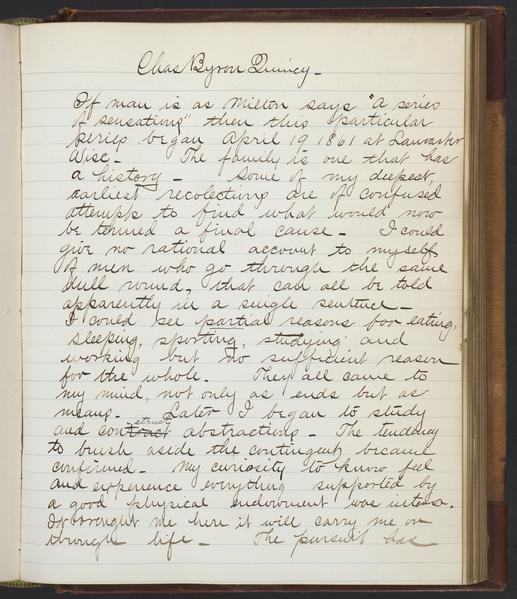 Chas Byron Quincy -
If man is as Milton says "a series
of sensations" then this particular
series began April 19 1861 at Lancaster
Wisc - The family is one that has
a history - Some of my deepest
earliest recolections are of confused
attempts to find what would now
be termed a final cause - I could
give no rational account to myself
of men who go through the same
dull round, that can all be told
apparently in a single sentence -
I could see partial reasons for eating,
sleeping, sporting, studying and
working but no sufficient reason
for the whole. They all came to
my mind, not only as ends but as
means. Later I began to study
and contract struct abstractions - The tendency
to brush aside the contingent became
confirmed - My curiosity to know feel
and experience everything supported by
a good physical endowment was intense.
It brought me here it will carry me on
through life - The pursuit has